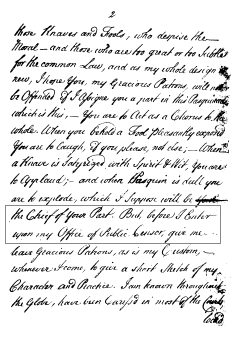 2
those Knaves and Fools, who despise the
Moral – and those who are too great or too Subtle
for the common Law, and as my whole design is
new, I hope You, my Gracious Patrons, will not
be Offended if I assigne you a part in this Pasquinade
which is this, – You are to Act as a Chorus to the
whole. When you behold a Fool pleasantly exposed
You are to Laugh, if you please, not else; – When
a Knave is Satyrized with Spirit & Wit, You are
to Applaud; – and when Pasquin is dull you
are to explode, which I suppose will be
the Chief of Your Part. But, before I Enter
upon my Office of Public Censor, give me
leave Gracious Patrons, as is my Custom, –
whenever I come, to give a short Sketch of my
Character and Practice. I am known throughout
the Globe, have been Caress'd in most of the